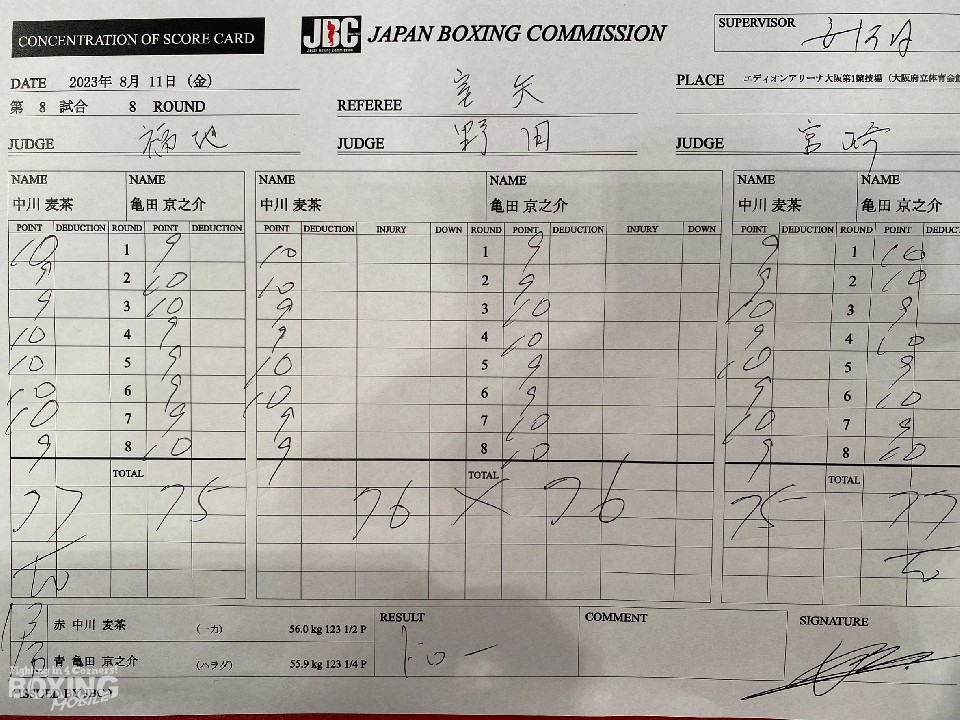 CONCENTRATION OF SCORE CARD
JBC JAPAN BOXING COMMISSION
SUPERVISOR
DATE 2023年 8月 11日 (金)
PLACE エディオンアリーナ大阪第1競技場(大阪府立体育会館
第 8 試合 8 ROUND
REFEREE
JUDGE 福地
JUDGE 野田
JUDGE 宮崎
NAME NAME NAME NAME NAME NAME
中川 麦茶 亀田 京之介 中川 麦茶 亀田 京之介 中川 麦茶 亀田 京之介
POINT DEDUCTION ROUND POINT DEDUCTION POINT DEDUCTION INJURY DOWN ROUND POINT DEDUCTION INJURY DOWN POINT DEDUCTION ROUND POINT DEDUCT
10 1 9 10 1 9 9 1 10
9 2 10 10 2 9 9 2 10
9 3 10 9 3 10 10 3 9
10 4 9 9 4 10 9 4 10
10 5 9 10 5 9 10 5 9
10 6 9 10 6 9 9 6 10
10 7 9 9 7 10 10 7 9
9 8 10 9 8 10 9 8 10
TOTAL TOTAL TOTAL
77 75 76 X 76 75 77
赤 中川 麦茶 (一力) 56.0 kg 123 1/2 P
青 亀田 京之介 (ハラダ) 55.9 kg 123 1/4 P
RESULT
COMMENT
SIGNATURE
Fighting in 4 Corners!
BOXING
MOBILE